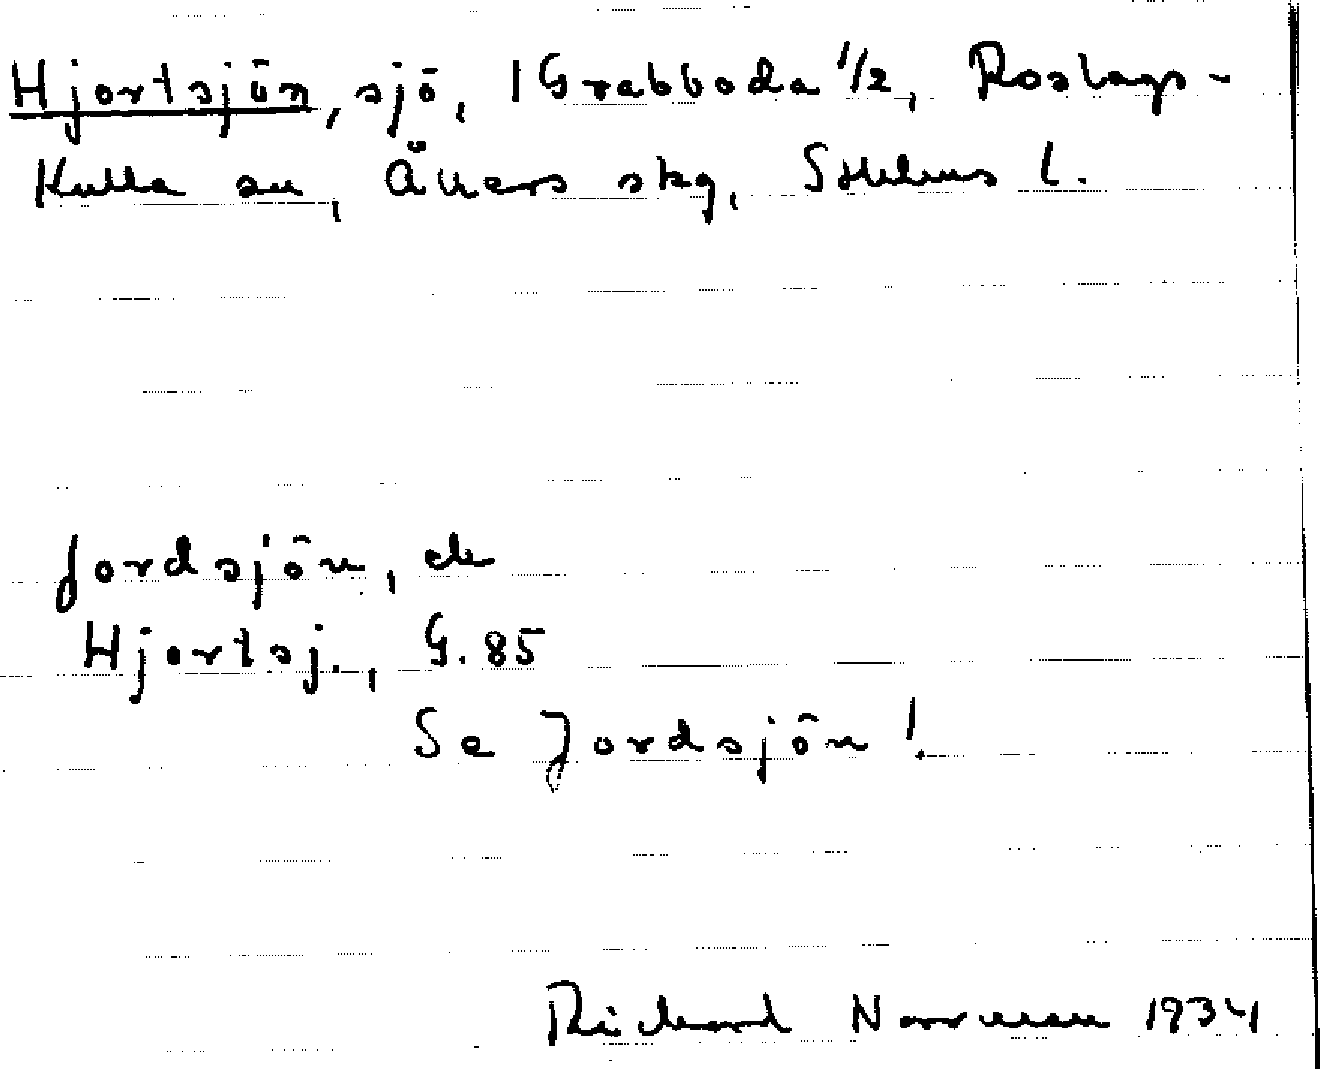 Hjortsjön, sjö, 1 Grabboda 1/2, Roslags-
Kulla sn, Åkers skg, Sthlms l.
Jordsjön, ek
Hjortsj., G. 85
Se Jordsjön!
Rickard Norrman 1934